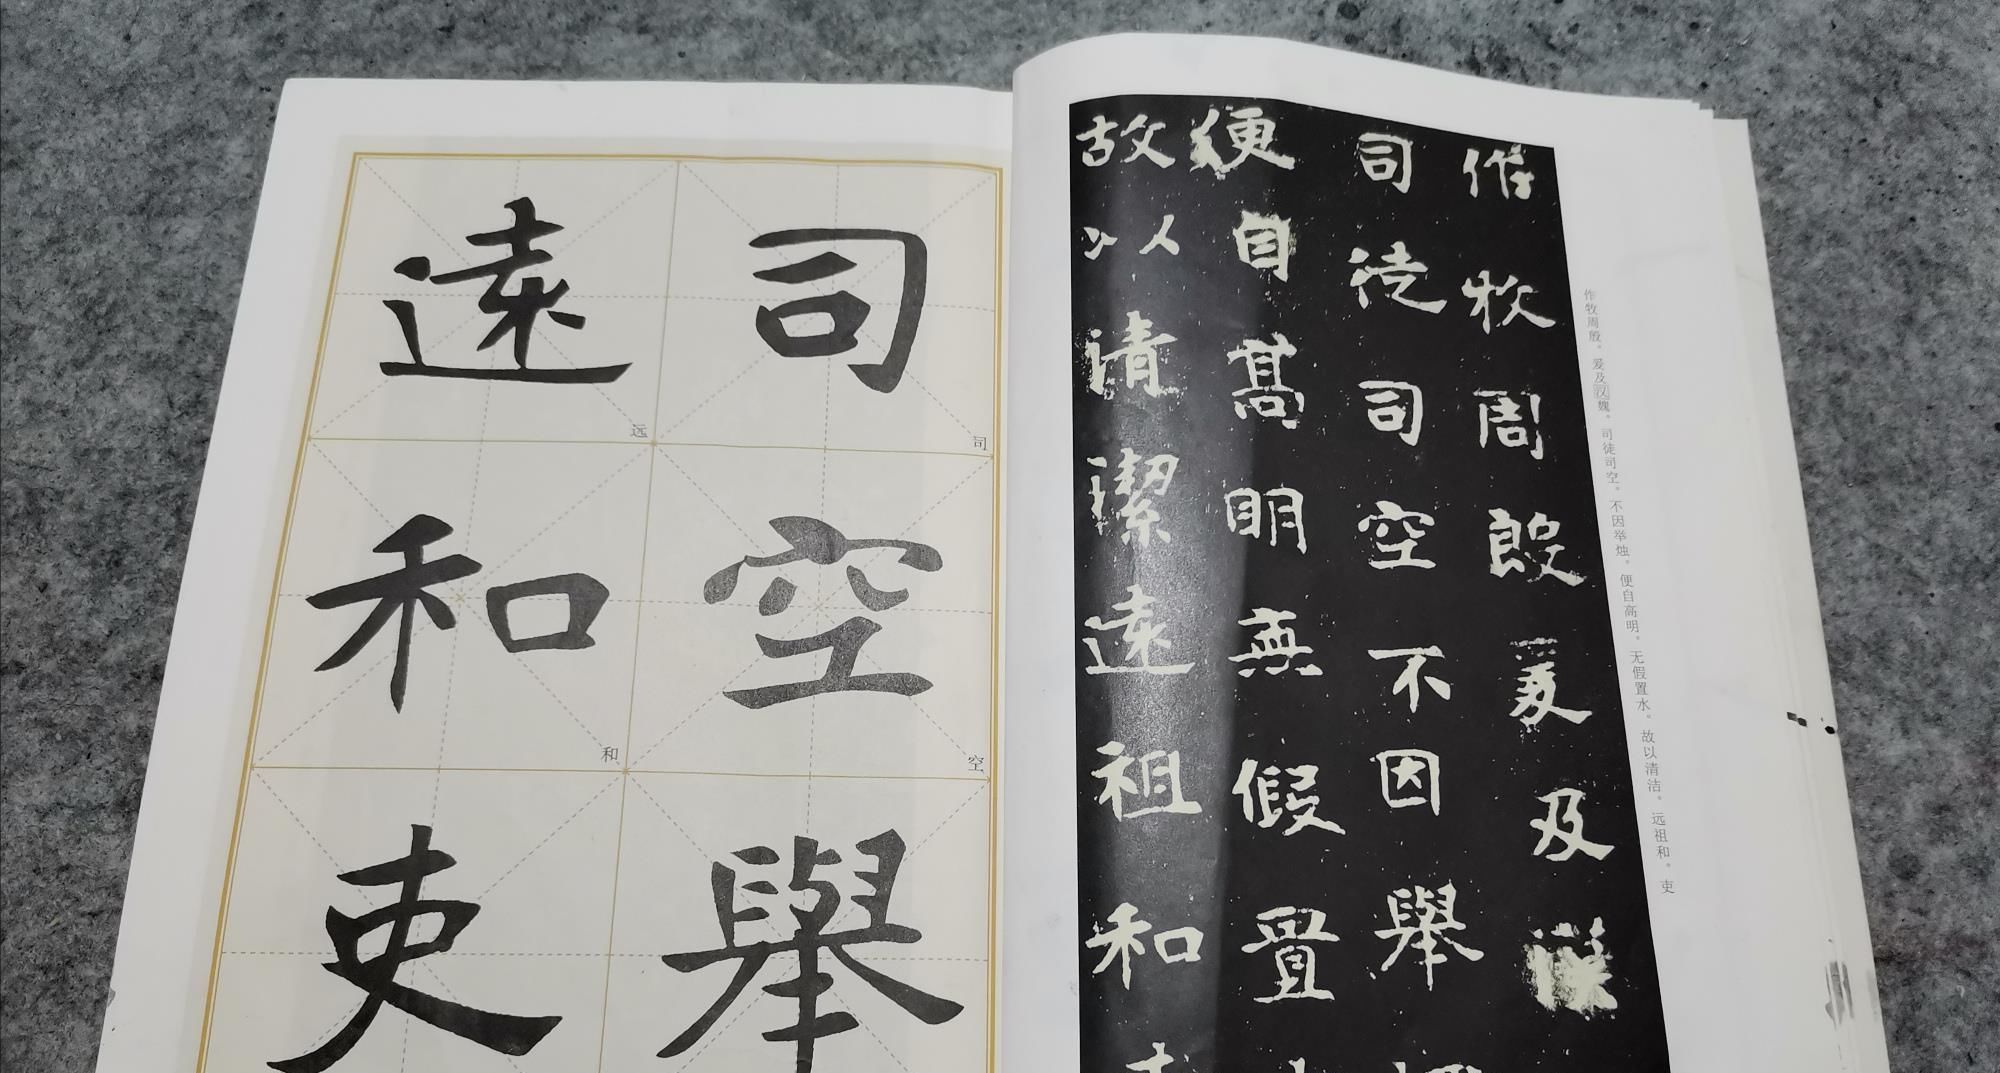 司
空
舉
遠
和
吏
司
空
远
和
作牧周殷爰及漢
司徒司空不因舉
便自高明無假置
故以清潔遠祖和
作牧周殷。爰及汉魏。司徒司空。不因举烛。便自高明。无假置水。故以清洁。远祖和。吏